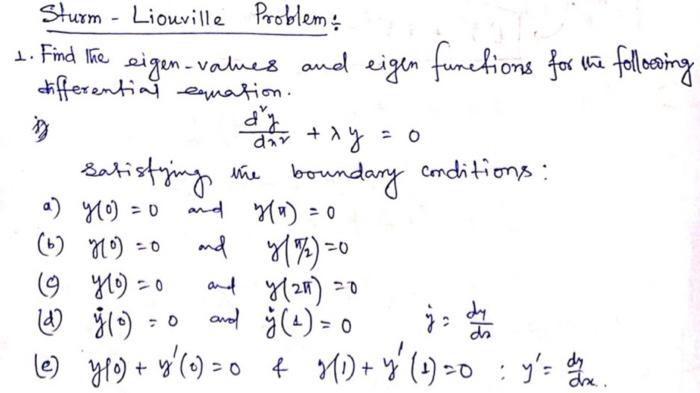 Sturm - Liouville Problem:
1. Find the eigen-values and eigen functions for the following
differential equation.
i) d²y/dx² + λy = 0
satisfying the boundary conditions:
a) y(0) = 0 and y(π) = 0
(b) y(0) = 0 and y(π/2) = 0
(c) y(0) = 0 and y(2π) = 0
(d) ẏ(0) = 0 and ẏ(1) = 0 ẏ = dy/dx
(e) y(0) + y'(0) = 0 & y(1) + y'(1) = 0 : y' = dy/dx.